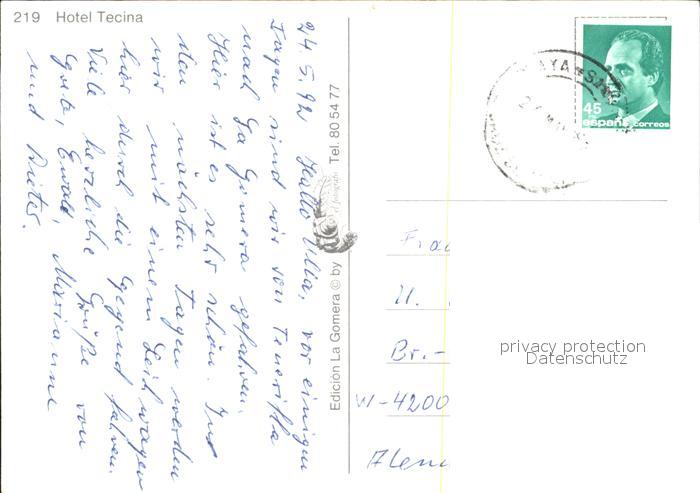 219 Hotel Tecina
24.5.92 Hallo Ulla, vor einigen
Tagen sind wir von Teneriffa
nach La Gomera gefahren.
Hier ist es sehr schön. In
den nächsten Tagen werden
wir mit einem Leihwagen
hier durch die Gegend fahren.
Viele herzliche Grüße von
Grete, Ewald, Marianne
und Dieter.
Edición La Gomera © by
Tel. 80 54 77
45
españa correos
H.
Br.-
W-4200
privacy protection
Datenschutz